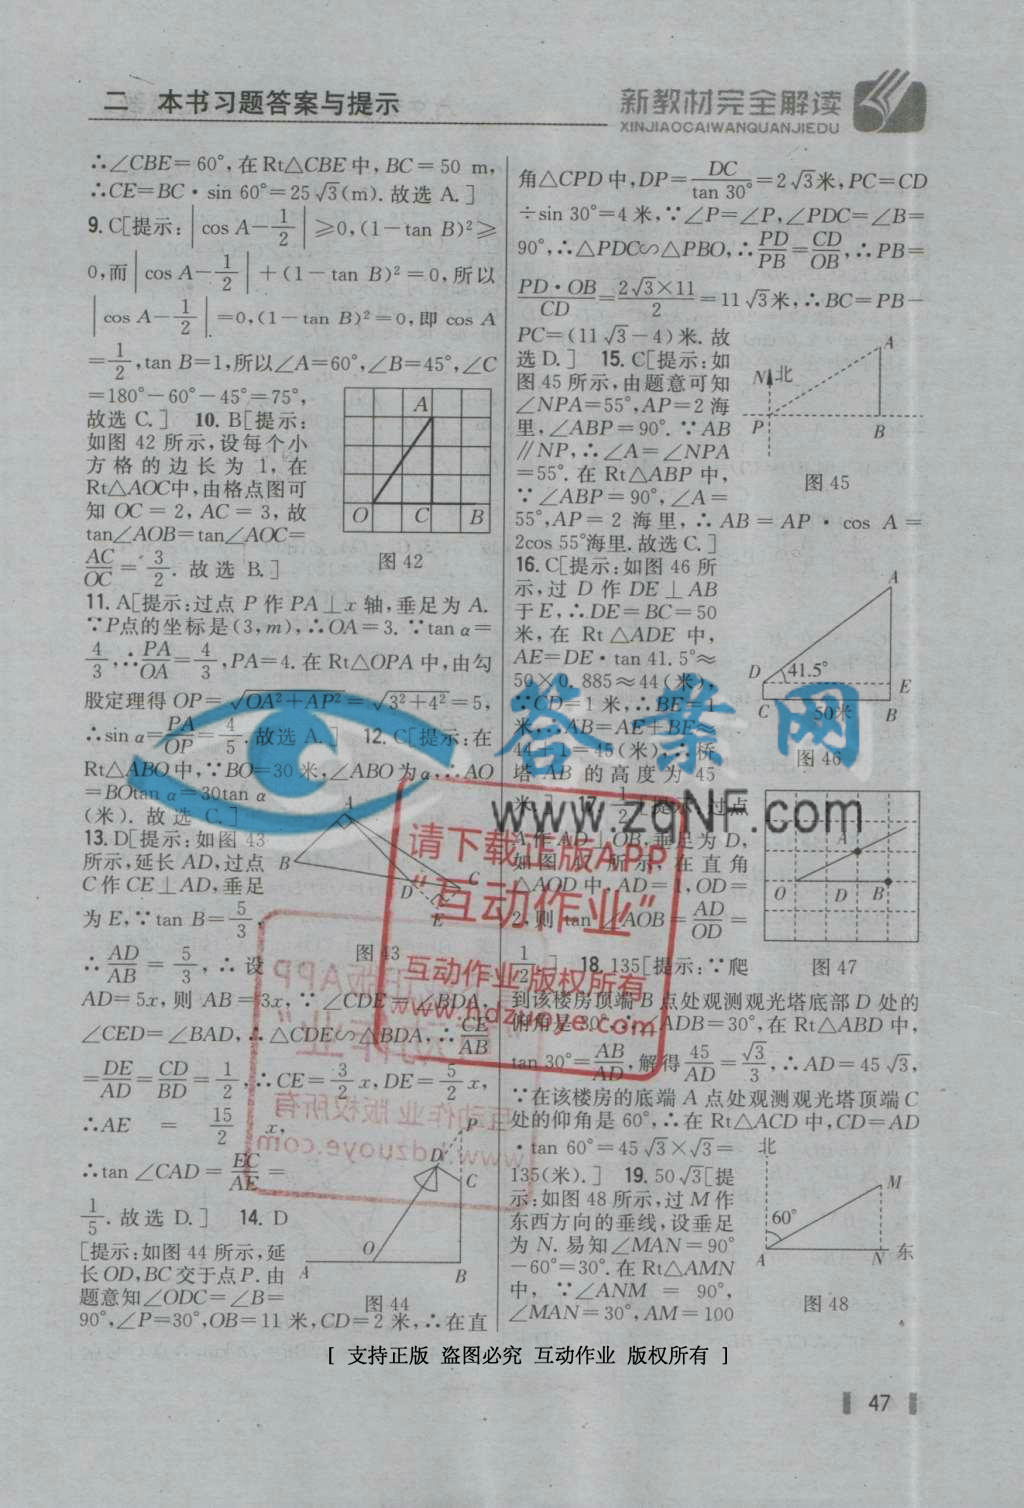 二 本书习题答案与提示
新教材完全解读
XINJIAOCAIWANQUANJIEDU
∴∠CBE=60°,在Rt△CBE中,BC=50 m,
∴CE=BC·sin 60°=25√3(m).故选 A.]
9. C[提示:|cos A-1/2|≥0,(1-tan B)²≥
0,而|cos A-1/2|+(1-tan B)²=0,所以
|cos A-1/2|=0,(1-tan B)²=0,即 cos A
=1/2,tan B=1,所以∠A=60°,∠B=45°,∠C
=180°-60°-45°=75°,
故选 C.] 10. B[提示:
如图 42 所示,设每个小
方格的边长为 1,在
Rt△AOC中,由格点图可
知 OC=2,AC=3,故
tan∠AOB=tan∠AOC=
AC/OC=3/2.故选 B.]
A
O C B
图 42
11. A[提示:过点 P 作 PA⊥x 轴,垂足为 A.
∵P点的坐标是(3,m),∴OA=3.∵tan α=
4/3,∴PA/OA=4/3,PA=4.在Rt△OPA中,由勾
股定理得 OP=√OA²+AP²=√3²+4²=5,
∴sin α=PA/OP=4/5.故选 A.] 12. C[提示:在
Rt△ABO中,∵BO=30 米,∠ABO为α,∴AO
=BOtan α=30tan α
(米).故选 C.]
13. D[提示:如图 43
所示,延长 AD,过点
C 作 CE⊥AD,垂足
为 E,∵tan B=5/3,
∴AD/AB=5/3,∴设
A
B
D
C
E
图 43
AD=5x,则 AB=3x,∵∠CDE=∠BDA,
∠CED=∠BAD,∴△CDE∽△BDA,∴CE/AB
=DE/AD=CD/BD=1/2,∴CE=3/2x,DE=5/2x,
∴AE=15/2x,
∴tan ∠CAD=EC/AE=
1/5.故选 D.] 14. D
[提示:如图 44 所示,延
长 OD,BC 交于点 P.由
题意知∠ODC=∠B=
P
D
C
O
A
B
图 44
90°,∠P=30°,OB=11 米,CD=2 米,∴在直
角△CPD中,DP=DC/tan 30°=2√3米,PC=CD
÷sin 30°=4 米,∵∠P=∠P,∠PDC=∠B=
90°,∴△PDC∽△PBO,∴PD/PB=CD/OB,∴PB=
PD·OB/CD=2√3×11/2=11√3米,∴BC=PB-
PC=(11√3-4)米.故
选 D.] 15. C[提示:如
图 45 所示,由题意可知
∠NPA=55°,AP=2 海
里,∠ABP=90°.∵AB
∥NP,∴∠A=∠NPA
=55°.在 Rt△ABP 中,
∵∠ABP=90°,∠A=
A
N 北
P
B
图 45
55°,AP=2 海里,∴AB=AP·cos A=
2cos 55°海里.故选 C.]
16. C[提示:如图 46 所
示,过 D 作 DE⊥AB
于 E,∴DE=BC=50
米,在 Rt△ADE 中,
AE=DE·tan 41.5°≈
50×0.885≈44(米),
∵CD=1 米,∴BE=1
米,∴AB=AE+BE=
44+1=45(米),∴桥
塔 AB 的高度为 45
米.] 17. 1/2[提示:过点
A
D
41.5°
E
C
50米
B
图 46
A作AD⊥OB,垂足为D,
如图 47 所示,在直角
△AOD中,AD=1,OD=
2,则 tan ∠AOB=AD/OD=
1/2.] 18. 135[提示:∵爬
A
O D B
图 47
到该楼房顶端B点处观测观光塔底部D处的
俯角是30°,∴∠ADB=30°,在Rt△ABD中,
tan 30°=AB/AD,解得45/AD=√3/3,∴AD=45√3,
∵在该楼房的底端 A 点处观测观光塔顶端C
处的仰角是 60°,∴在 Rt△ACD 中,CD=AD
·tan 60°=45√3×√3=
135(米).] 19. 50√3[提
示:如图 48 所示,过 M 作
东西方向的垂线,设垂足
为 N.易知∠MAN=90°
-60°=30°.在Rt△AMN
中,∵∠ANM=90°,
∠MAN=30°,AM=100
北
M
60°
A
N 东
图 48
答案网
www.zqNF.com
请下载正版APP
“互动作业”
互动作业 版权所有
www.hdzuoye.com
[ 支持正版 盗图必究 互动作业 版权所有 ]
47